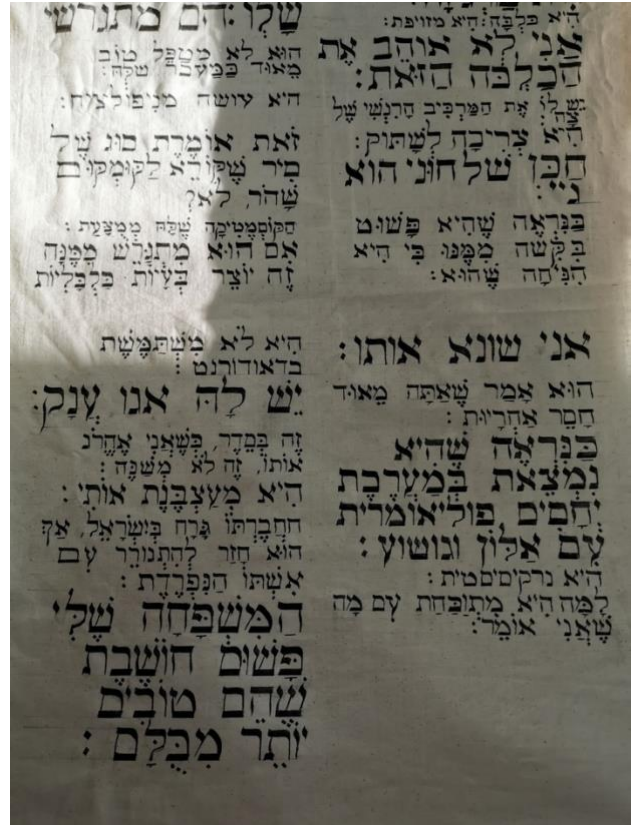 היא כַּלְבָּה: היא מזויפת:
אֲנִי לֹא אוֹהֵב אֶת
הַכַּלְבָּה הַזֹּאת:
אֶת הַמַּרְכִּיב הָרִגְשִׁי שֶׁל
צְרִיכָה לִשְׁתּוֹק:
הַבֵּן שֶׁל חוֹנִי הוּא
גיי:
כַּנִּרְאֶה שֶׁהִיא פָּשׁוּט
בִּקְשָׁה מִמֶּנּוּ כִּי הִיא
שֶׁהוּא:
אֲנִי שׂוֹנֵא אוֹתוֹ:
הוּא אָמַר שֶׁאַתָּה מְאוֹד
חֲסַר אַחֲרָיוּת:
כַּנִּרְאֶה שֶׁהִיא
נִמְצֵאת בְּמַעֲרֶכֶת
יְחָסִים פּוֹלִיאוֹמרית
עִם אַלּוֹן וגוטוע:
הִיא נרקיסיסטית:
לָמָּה הִיא מִתְוַכַּחַת עִם מָה
שֶׁאֲנִי אוֹמֵר:
שֶׁלּוֹ: הֵם מִתְגָּרְשִׁי
הִיא לֹא מְטַפֵּל טוֹב
מְאוֹד בַּמַּעֲבָר שֶׁלָּהּ:
הִיא עוֹשָׂה מניפולציה:
זֹאת אוֹמֶרֶת סוּג שֶׁל
סִיר שֶׁקּוֹרֵא לַקּוּמְקוּם
שָׁחֹר, לֹא?
הַקּוֹסְמֶטִיקָה שֶׁלָּהּ מְמֻצַּעַת:
אִם הוּא מִתְגָּרֵשׁ מִמֶּנָּה
זֶה יוֹצֵר בְּעָיוֹת כַּלְכָּלִיּוֹת
הִיא לֹא מִשְׁתַּמֶּשֶׁת
בדאודורנט:
יֵשׁ לָהּ אגו עֲנָק:
זֶה בְּסֵדֶר, כְּשֶׁאֲנִי אֶהֱרֹג
אוֹתוֹ, זֶה לֹא מְשַׁנֶּה:
הִיא מְעַצְבֶּנֶת אוֹתִי:
הַחֲבֶרְתּוֹ גָּרָה בְּיִשְׂרָאֵל, אַךְ
הוּא חָזַר לְהִתְגּוֹרֵר עִם
אִשְׁתּוֹ הַנִּפְרֶדֶת:
הַמִּשְׁפָּחָה שֶׁלִּי
פָּשׁוּט חוֹשֶׁבֶת
שֶׁהֵם טוֹבִים
יוֹתֵר מִכֻּלָּם: